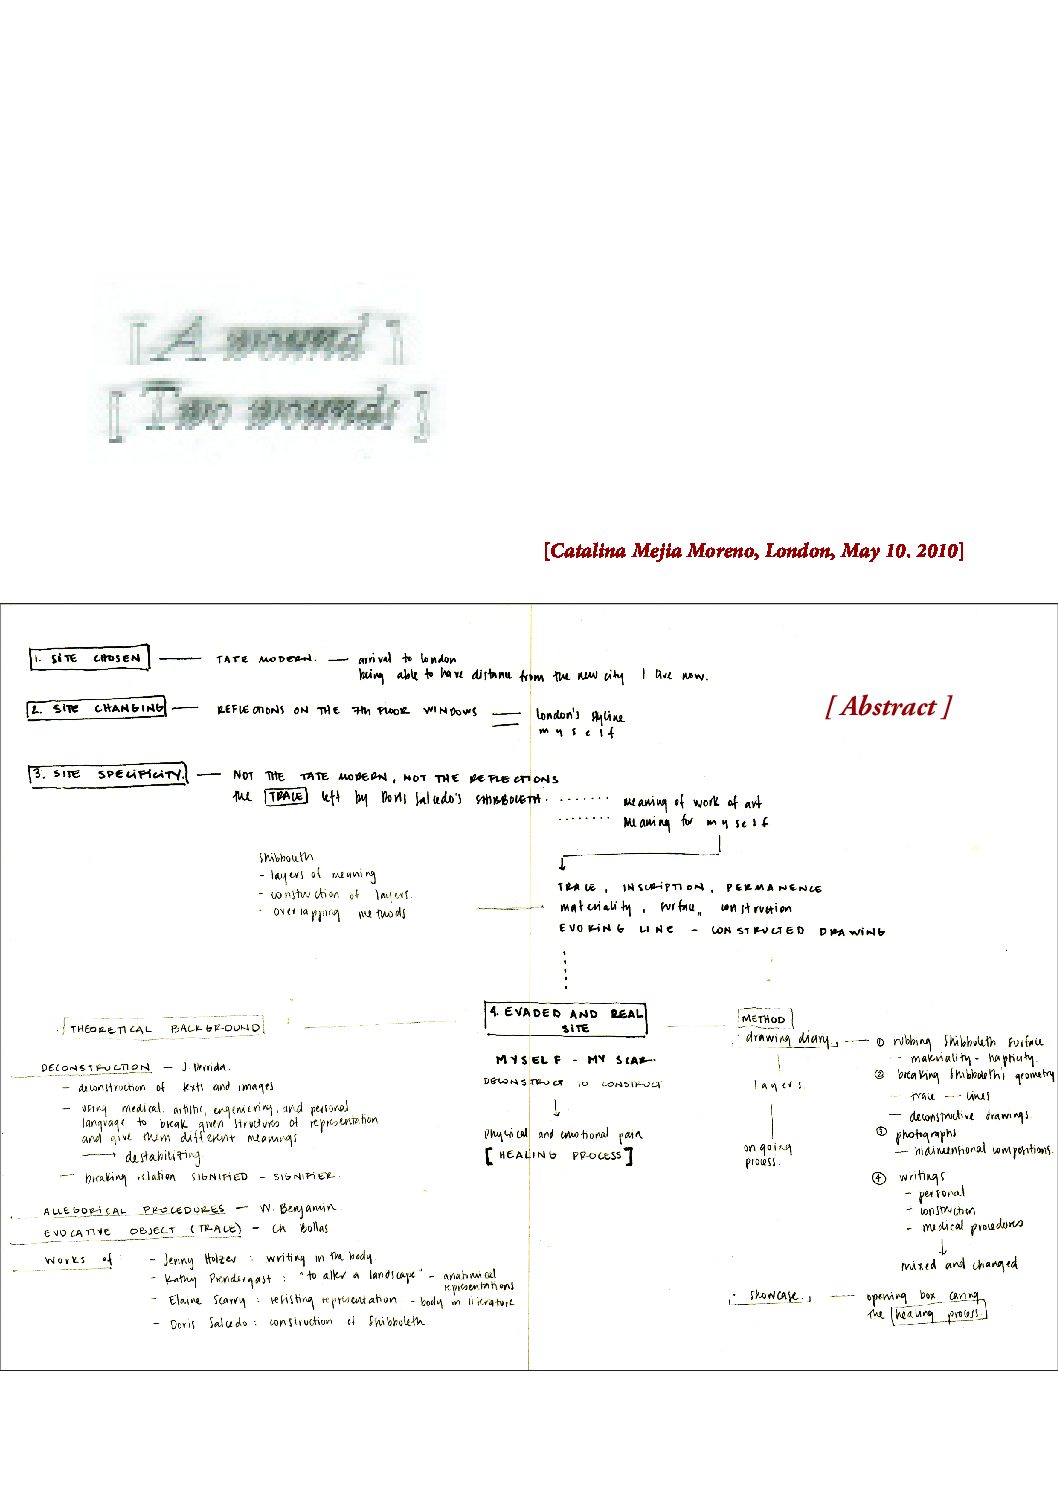 [ A wound ]
[ Two wounds ]
[Catalina Mejia Moreno, London, May 10. 2010]
[ Abstract ]
1. SITE CHOSEN — TATE MODERN. — arrival to london
being able to have distance from the new city I live now.
2. SITE CHANGING — REFLECTIONS ON THE 7TH FLOOR WINDOWS — london's skyline
myself
3. SITE SPECIFICITY. — NOT THE TATE MODERN, NOT THE REFLECTIONS
the TRACE left by Doris Salcedo's SHIBBOLETH. ........ meaning of work of art
........ meaning for myself
Shibboleth
- layers of meaning
- construction of layers.
- overlapping methods
TRACE, INSCRIPTION, PERMANENCE
materiality, surface, construction
EVOKING LINE - CONSTRUCTED DRAWING
THEORETICAL BACKGROUND
DECONSTRUCTION — J. Derrida.
— deconstruction of texts and images
— using medical, artistic, engeniering, and personal
language to break given structures of representation
and give them different meanings
→ destabilizing.
— breaking relation SIGNIFIED - SIGNIFIER.
ALLEGORICAL PROCEDURES — W. Benjamin
EVOCATIVE OBJECT (TRACE) — Ch Bollas
Works of
- Jenny Holzer : writing in the body
- Kathy Prendergast : "to alter a landscape" - anatomical
representations
- Elaine Scarry : resisting representation - body in literature
- Doris Salcedo : construction of Shibboleth
4. EVADED AND REAL
SITE
MYSELF - MY SCAR.
DECONSTRUCT to CONSTRUCT
Physical and emotional pain
[HEALING PROCESS]
METHOD
drawing diary
layers
on going
process.
① rubbing Shibboleth surface
- materiality - hapticity.
② breaking Shibboleth's geometry
— trace — lines
— deconstructive drawings.
③ photographs
— bidimentional compositions.
④ writings
- personal
- construction
- medical procedures
mixed and changed
showcase. — opening box caring
the healing process.